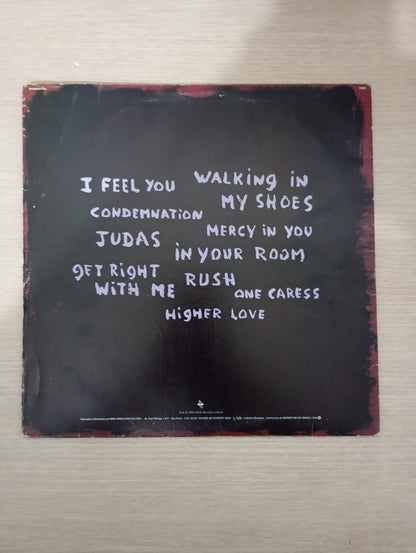 I FEEL YOU
WALKING iN
MY SHOES
CONDEMNATION
MERCY iN YOU
JUDAS
iN YOUR ROOM
gET RigHT
WiTH ME
RUSH
ONE CARESS
HigHER LOVE